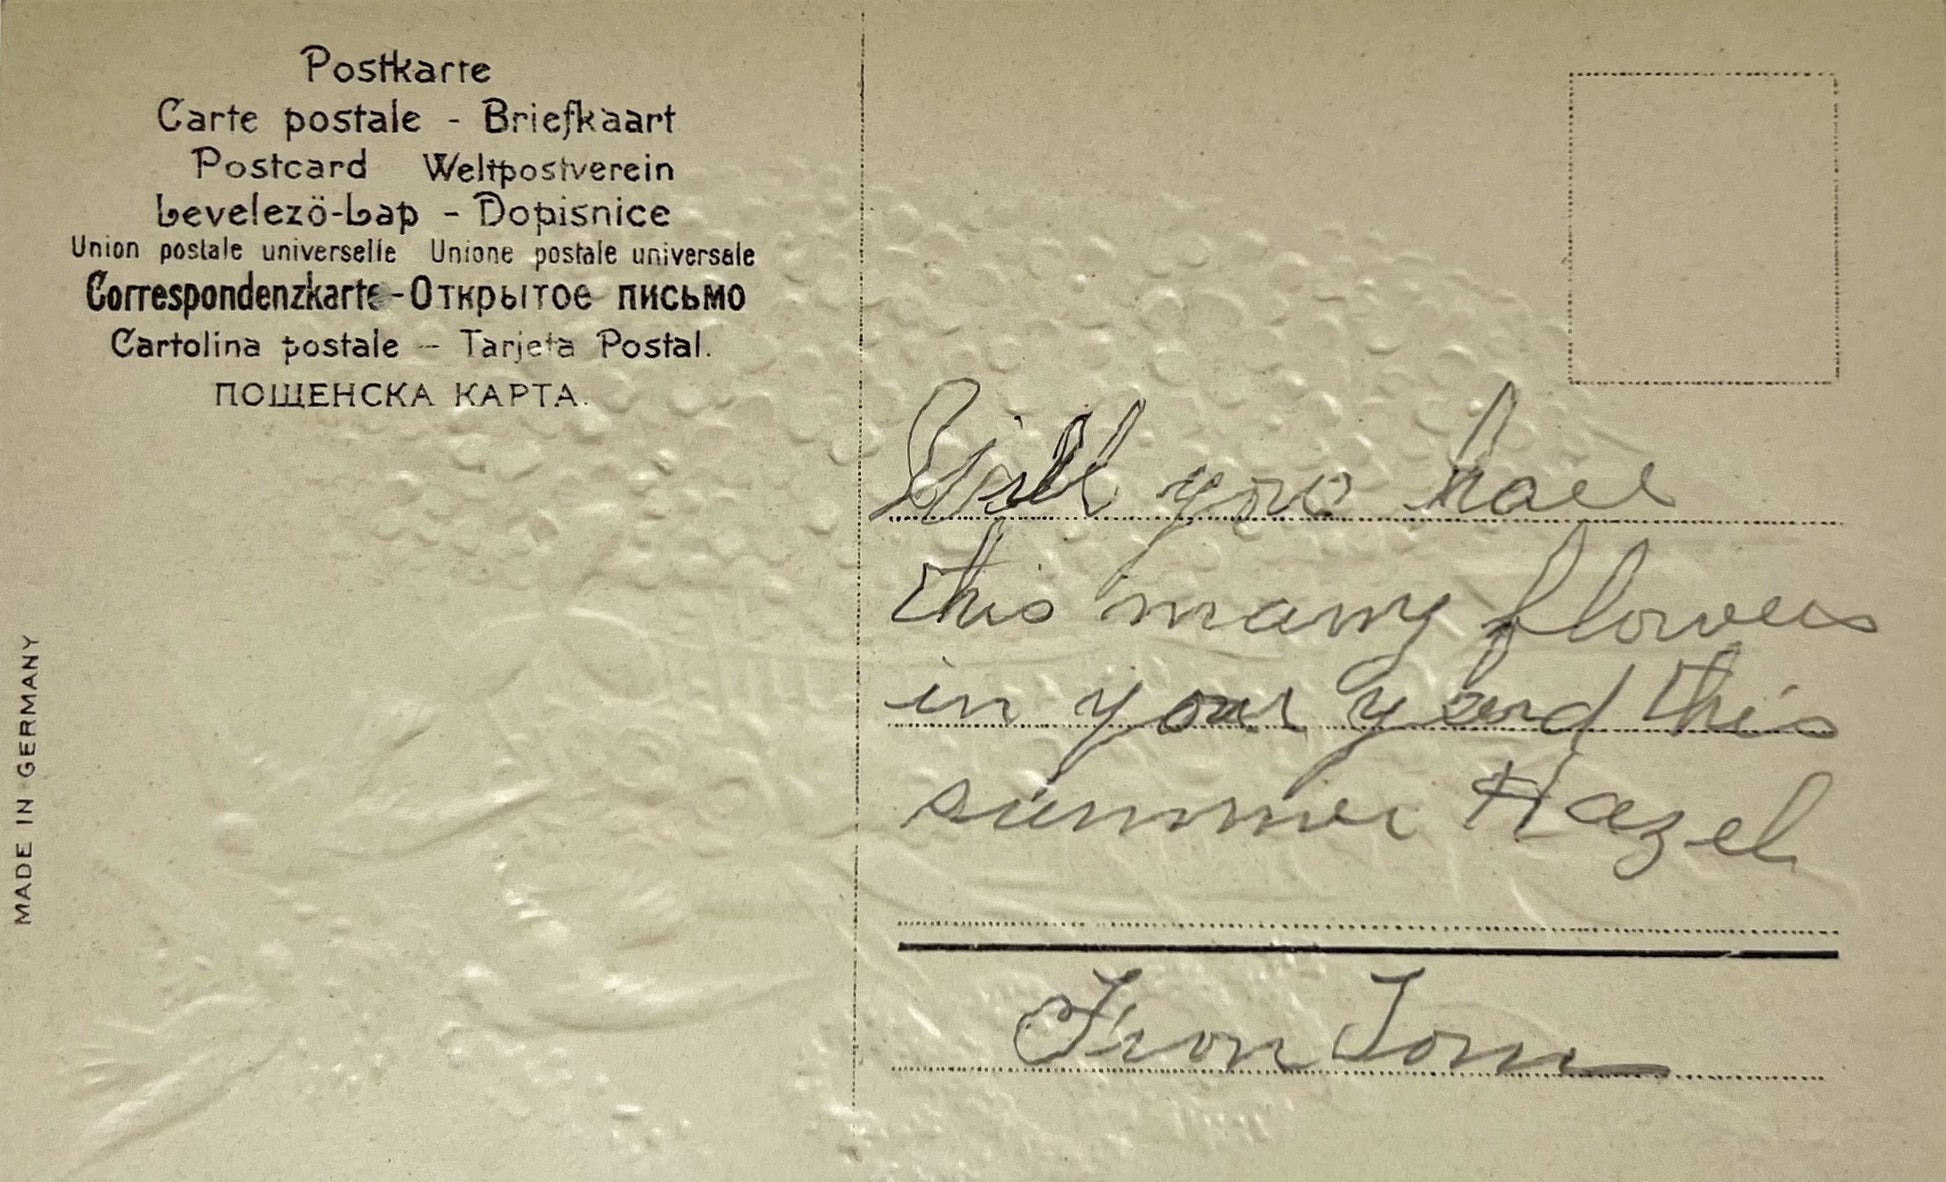 Postkarte
Carte postale - Briefkaart
Postcard Weltpostverein
Levelezö-Lap - Dopisnice
Union postale universelle Unione postale universale
Correspondenzkarte - Открытое письмо
Cartolina postale - Tarjeta Postal.
ПОЩЕНСКА КАРТА.
MADE IN GERMANY
Will you have
this many flowers
in your yard this
summer Hazel
From Tom